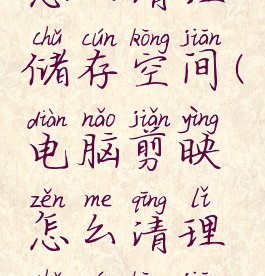 chǔ cún kōng jiān
储存空间(
diàn nǎo jiǎn yìng
电脑剪映
zěn me qīng lǐ
怎么清理